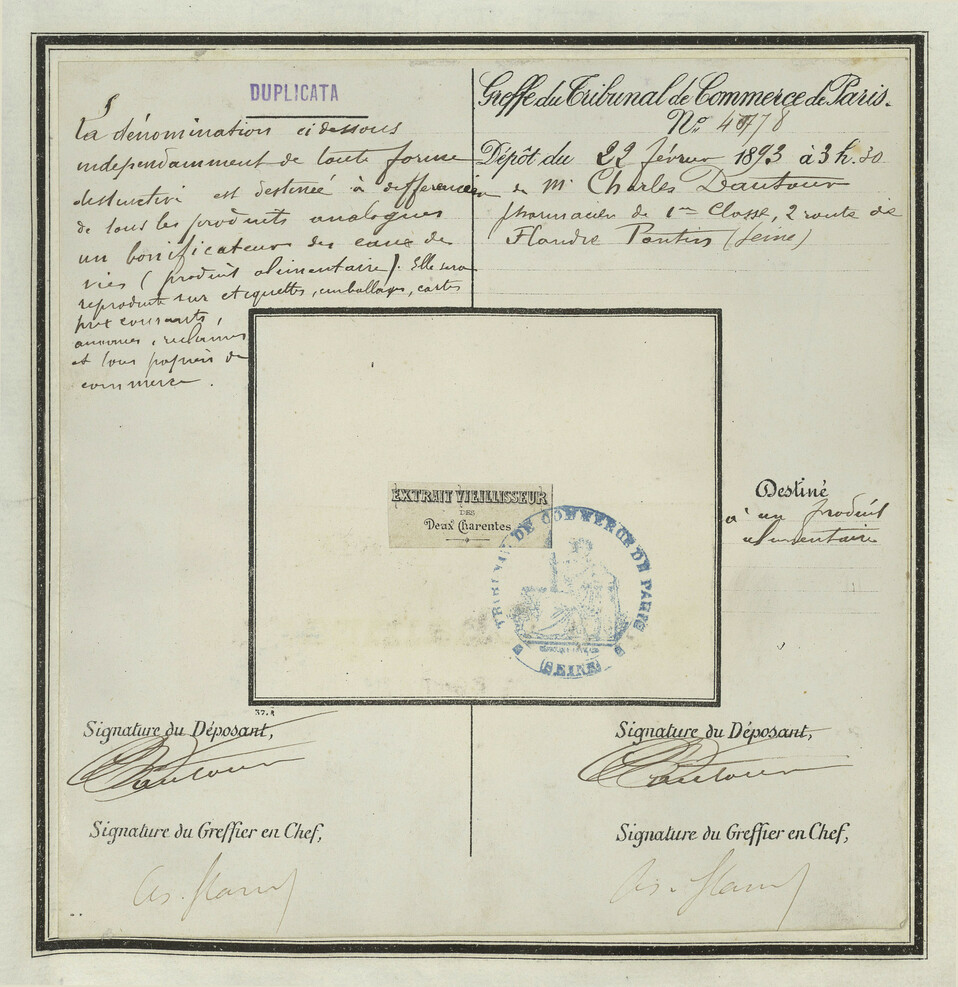 DUPLICATA
La dénomination cidessous
independamment de toute forme
distinctive est destinée à differencier
de tous les produits analogues
un bonificateur des eaux de
vies (produit alimentaire). Elle sera
reproduite sur etiquettes, emballages, cartes
prix courants,
annonces, reclames
et tous papiers de
commerce.
Greffe du Tribunal de Commerce de Paris.
No
Dépôt du 22 février 1893 à 3 h. 30
Mr Charles Dautour
pharmacien de 1re Classe, 2 route de
Flandre Pantin (Seine)
EXTRAIT VIEILLISSEUR
DES
Deux Charentes
TRIBUNAL DE COMMERCE DE PARIS
(SEINE)
Destiné
à un produit
alimentaire
37.
Signature du Déposant,
Dautour
Signature du Greffier en Chef,
Signature du Déposant,
Dautour
Signature du Greffier en Chef,